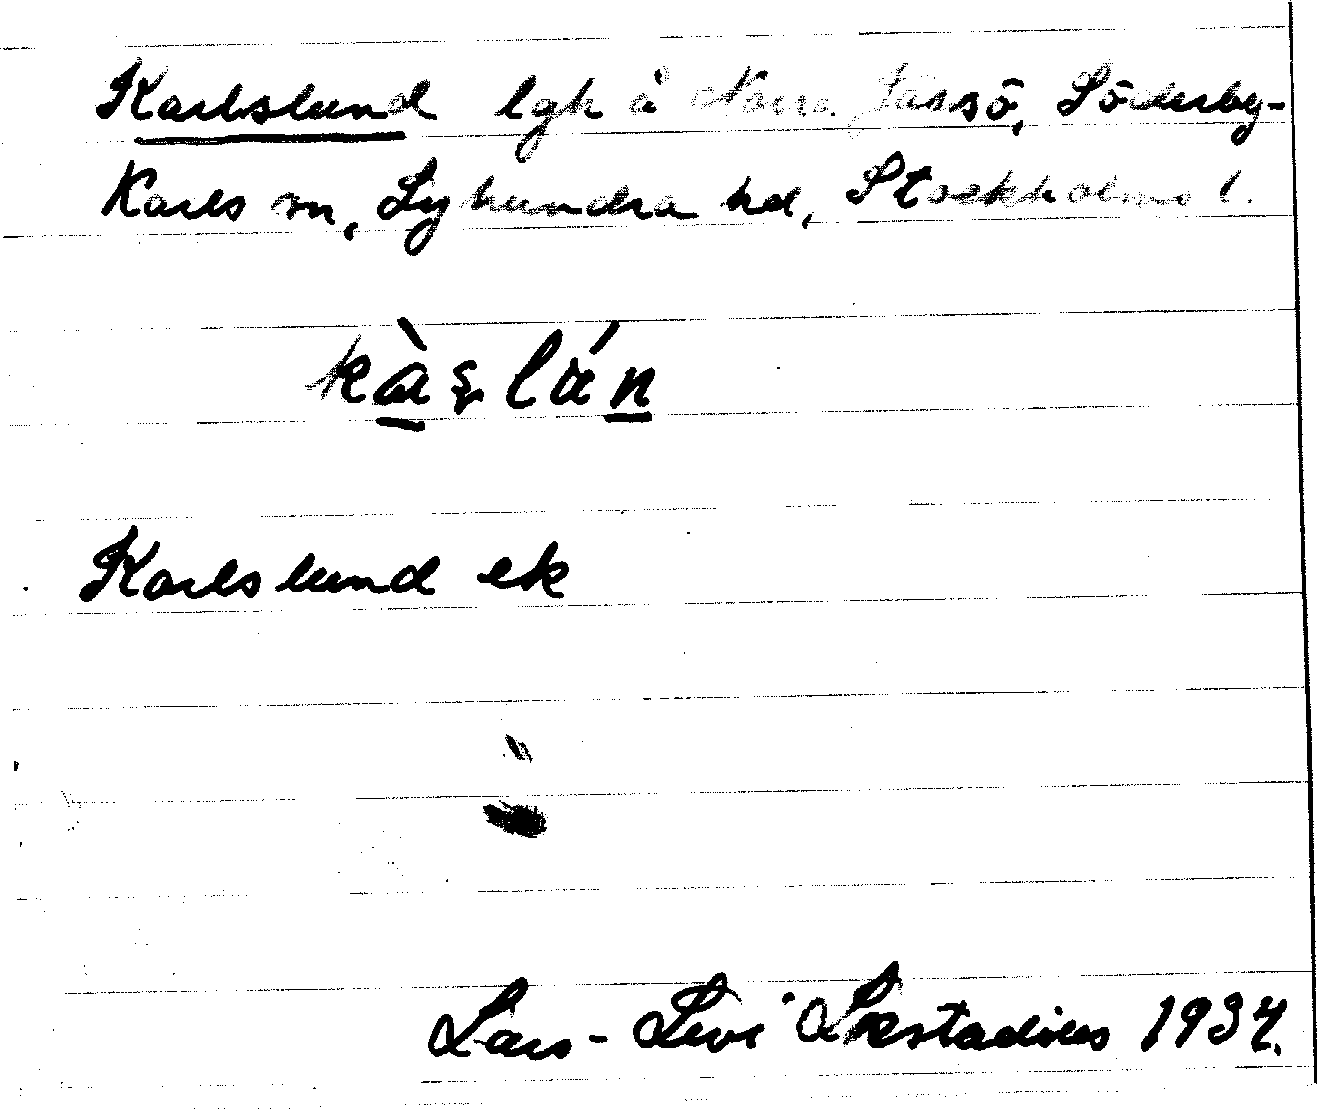 Karlslund lgh å Norra Järsö, Söderby-
Karls sn, Lyhundra hd, Stockholms l.
kàʂlán
Karlslund ek
Lars-Levi Læstadius 1934.